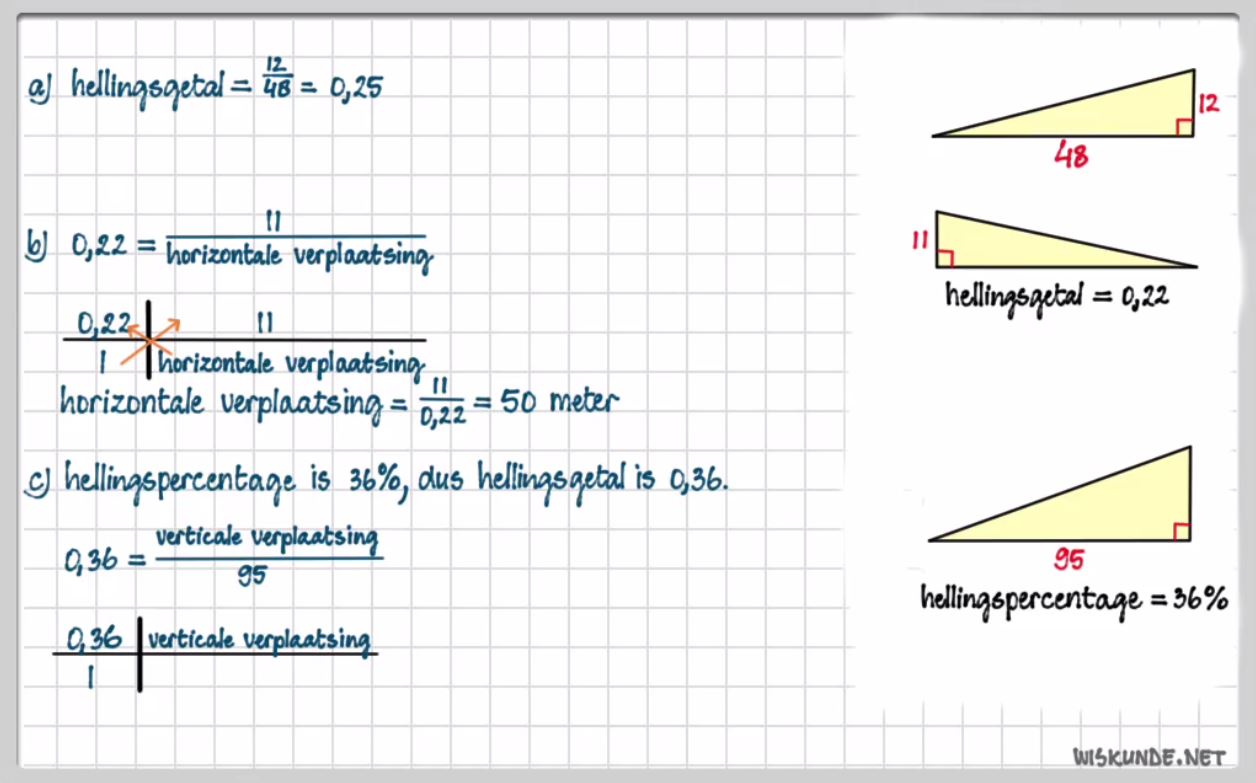 a) hellingsgetal = 12/48 = 0,25
12
48
b) 0,22 = 11/horizontale verplaatsing
11
hellingsgetal = 0,22
0,22 | 11
1 | horizontale verplaatsing
horizontale verplaatsing = 11/0,22 = 50 meter
c) hellingspercentage is 36%, dus hellingsgetal is 0,36.
0,36 = verticale verplaatsing/95
95
hellingspercentage = 36%
0,36 | verticale verplaatsing
1
WISKUNDE.NET